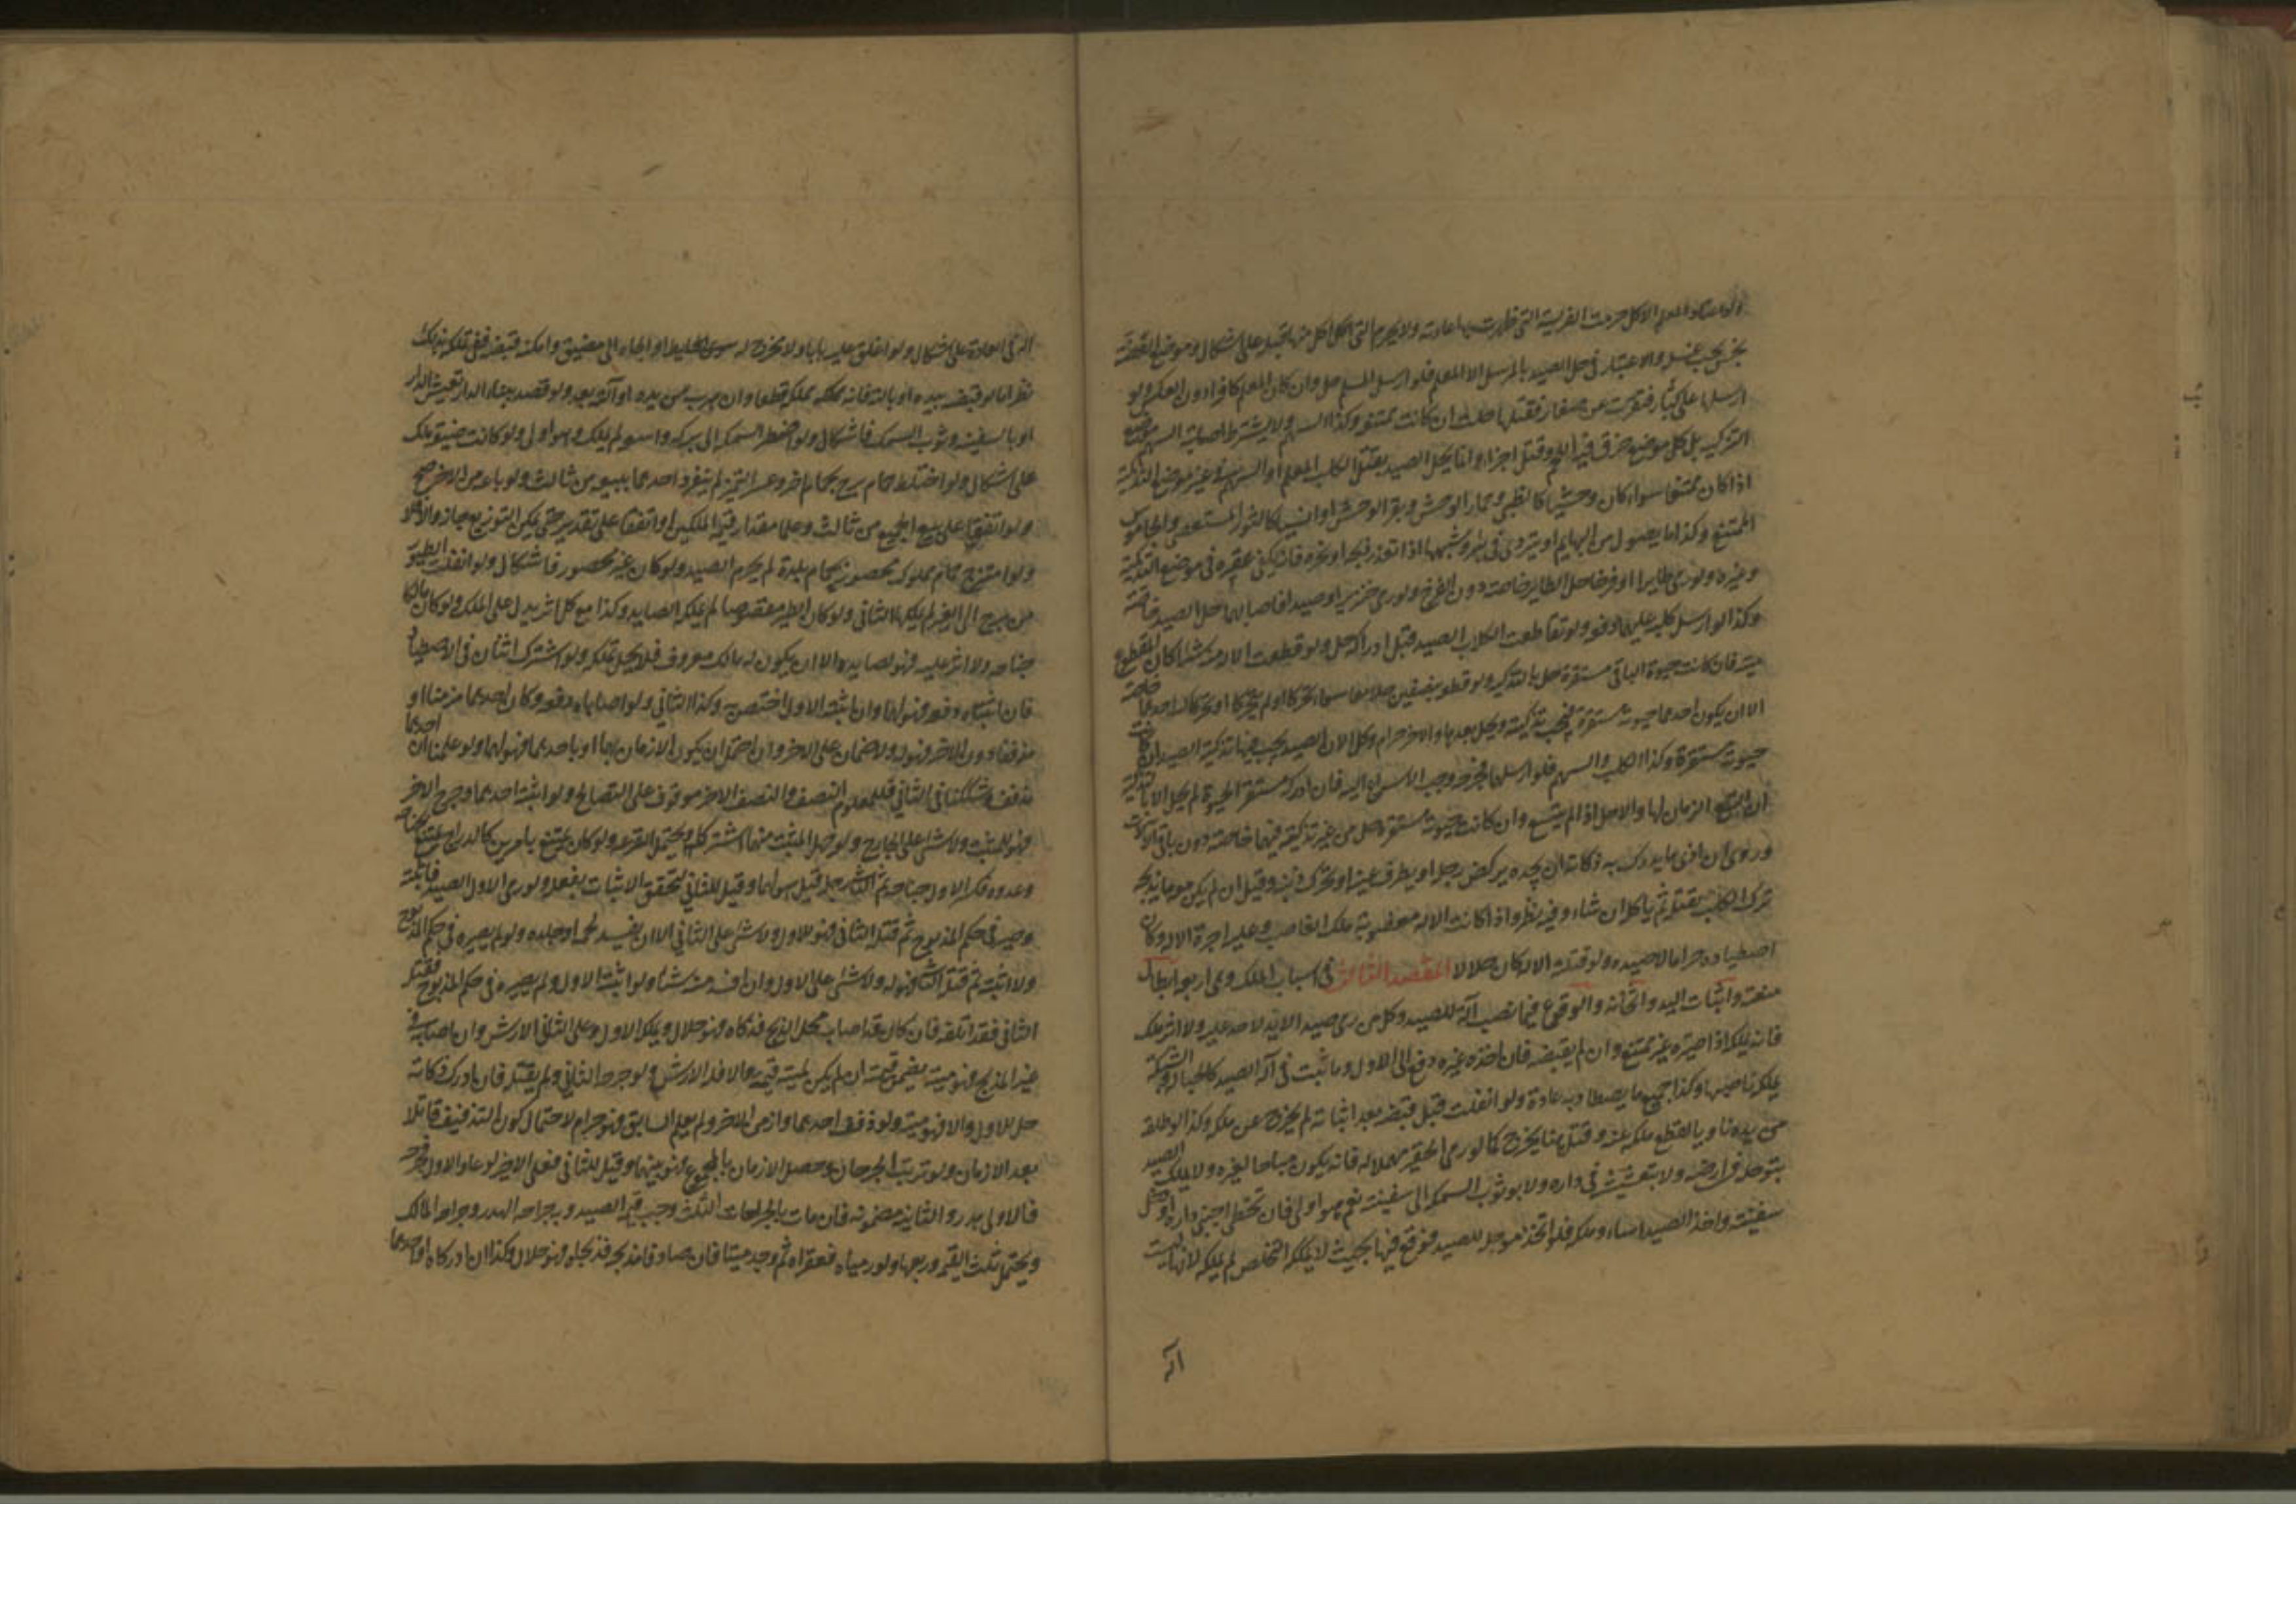 ولو اعتاد المعلم الاكل حرمت الفريسة التى ظهرت بها عادته ولا يحرم التى اكل قبلها على اشكال وموضع العضة
نجس يجب غسله والاعتبار فى حل الصيد بالمرسل لا المعلم فلو ارسل المسلم حل وان كان المعلم كافرا دون العكس ولو
ارسلها على كبار فتفرقت عن صغار فقتلها حلت ان كانت ممتنعة وكذا السهم ولا يشترط اصابة السهم موضع
التذكية بل كل موضع خرق فيه اللحم وقتل اجزأ وانما يحل الصيد بقتل الكلب المعلم او السهم فى غير موضع التذكية
اذا كان ممتنعا سواء كان وحشيا كالظبى وحمار الوحش وبقر الوحش او انسيا كالثور المستعصى والجاموس
الممتنع وكذا ما يصول من البهايم او يتردى فى بئر وشبهها اذا تعذر ذبحه او نحره فانه يكفى عقره فى موضع التذكية
وغيره ولو رمى طايرا او فرخا حل الطاير خاصة دون الفرخ ولو رمى خنزيرا وصيدا فاصابهما حل الصيد خاصة
وكذا لو ارسل كلبه عليهما دفعة ولو تقاطعت الكلاب الصيد قبل ادراكه حل ولو قطعت الالة منه شيئا كان المقطوع
ميتة فان كانت حيوة الباقى مستقرة حل بالتذكية ولو قطعه بنصفين حلا معا سواء تحركا او لم يتحركا او تحرك احدهما خاصة
الا ان يكون احدهما حيوته مستقرة فيجب تذكيته ويحل بعدها والاخر حرام وكل الات الصيد يجب فيها تذكية الصيد ان كانت
حيوته مستقرة وكذا الكلب والسهم فلو ارسلهما فجرحه وجب الاسراع اليه فان ادركه مستقر الحيوة لم يحل الا بالتذكية
ان اتسع الزمان لها والا حل اذا لم يتسع وان كانت حيوته مستقرة حل من غير تذكية فيهما خاصة دون باقى الالات
وروى ان ادنى ما يدرك به ذكاته ان يجده يركض رجله او يطرف عينه او يتحرك ذنبه وقيل ان لم يكن معه ما يذبحه
ترك الكلب يقتله ثم ياكل ان شاء وفيه نظر واذا كانت الالة مغصوبة ملك الغاصب وعليه اجرة الالة وكان
اصطياده حراما لا صيده ولو قتلته الالة كان حلالا المقصد الثالث فى اسباب الملك وهى اربعة ابطال
منعته واثبات اليد واثخانه والوقوع فيما نصب آلة للصيد وكل من رمى صيدا لا يد لاحد عليه ولا اثر ملك
فانه يملكه اذا صيره غير ممتنع وان لم يقبضه فان اخذه غيره دفع الى الاول وما ثبت فى آلة الصيد كالحبالة والشبكة
يملكه ناصبها وكذا جميع ما يصطاد به عادة ولو انفلت قبل قبضه بعد اثباته لم يخرج عن ملكه وكذا لو اطلقه
من يده ناويا لقطع ملكه عنه وقيل هنا يخرج كما لو رمى الحقير مهملا له فانه يكون مباحا لغيره ولا يملك الصيد
بتوحله فى ارضه ولا بتعشيشه فى داره ولا بوثوب السمكة الى سفينته نعم هو اولى فان تخطى اجنبى داره او دخل
سفينته واخذ الصيد اساء وملكه فلو اتخذ موحلة للصيد فوقع فيها بحيث لا يمكنه التخلص لم يملكه لانها ليست
آلة
آلة فى العادة على اشكال ولو اغلق عليه بابا ولا مخرج له سوى الحليط او الجأه الى مضيق وامكنه قبضه ففى تملكه بذلك
نظر اما لو قبضه بيده او بالته فانه يملكه قطعا وان هرب من يده او آلته بعد ولو قصد ببناء الدار تعشيش الطاير
او بالسفينة وثوب السمك فاشكال ولو اضطر السمكة الى بركة واسعة لم يملك وهو اولى ولو كانت ضيقة ملك
على اشكال ولو اختلط حمام برج بحمام اخر وعسر التميز لم ينفرد احدهما ببيعه من ثالث ولو باعه من الاخر صح
ولو اتفقا على بيع الجميع من ثالث وعلما مقدار قيمة الملكين او اتفقا على تقدير حتى يمكن التوزيع جاز والا فلا
ولو امتزج حمام مملوكة محصورة بحمام بلدة لم يحرم الصيد ولو كان غير محصور فاشكال ولو انفلت الطيور
من برج الى اخر لم يملكها الثانى ولو كان الطير مقصوصا لم يملكه الصايد وكذا مع كل اثر يدل على الملك ولو كان مالكا
جناحه ولا اثر عليه فهو لصايده الا ان يكون له مالك معروف فلا يحل تملكه ولو اشترك اثنان فى الاصطياد
فان اثبتاه دفعة فهو لهما وان اثبته الاول اختص به وكذا الثانى ولو اصاباه دفعة وكان احدهما مزمنا او
مذففا دون الاخر فهو له ولا ضمان على الاخر وان احتمل ان يكون الازمان بهما او باحدهما فهو لهما ولو علمنا ان احدهما
مذفف وشككنا فى الثانى فللمعلوم النصف والنصف الاخر موقوف على التصالح ولو اثبته احدهما وجرح الاخر
فهو للمثبت ولا شئ على الجارح ولو جهل المثبت منهما اشتركا ويحتمل القرعة ولو كان يمتنع بامرين كالدراج يمتنع بجناحه
وعدوه فكسر الاول جناحه ثم الثانى رجله قيل هو لهما وقيل للثانى لتحقق الاثبات بفعله ولو رمى الاول الصيد فاثبته
وصيره فى حكم المذبوح ثم قتله الثانى فهو للاول ولا شئ على الثانى الا ان يفسد لحمه او جلده ولو لم يصيره فى حكم المذبوح
ولا اثبته ثم قتله الثانى فهو له ولا شئ على الاول وان افسد منه شيئا ولو اثبته الاول ولم يصيره فى حكم المذبوح فقتله
الثانى فقد اتلفه فان كان قد اصاب محل الذبح فذكاه فهو حلال ويملكه الاول وعلى الثانى الارش وان اصابه فى
غير المذبح فهو ميتة يضمن قيمته ان لم يكن لميتته قيمة والا فله الارش ولو جرحه الثانى ولم يقتله فان ادرك ذكاته
حل للاول والا فهو ميتة ولو ذفف احدهما وازمن الاخر ولم يعلم السابق فهو حرام لاحتمال كون التذفيف قاتلا
بعد الازمان ولو ترتب الجرحان وحصل الازمان بالمجموع فهو بينهما وقيل للثانى فعلى الاخير لو عاد الاول فجرحه
فالاولى هدر والثانية مضمونة فان مات بالجراحات الثلث وجب قيمة الصيد وبه جراحة الهدر وجراحة المالك
ويحتمل ثلث القيمة وربعها ولو رمياه فعقراه ثم وجد ميتا فان صادفا مذبحه فذبحاه فهو حلال وكذا ان ادركاه او احدهما